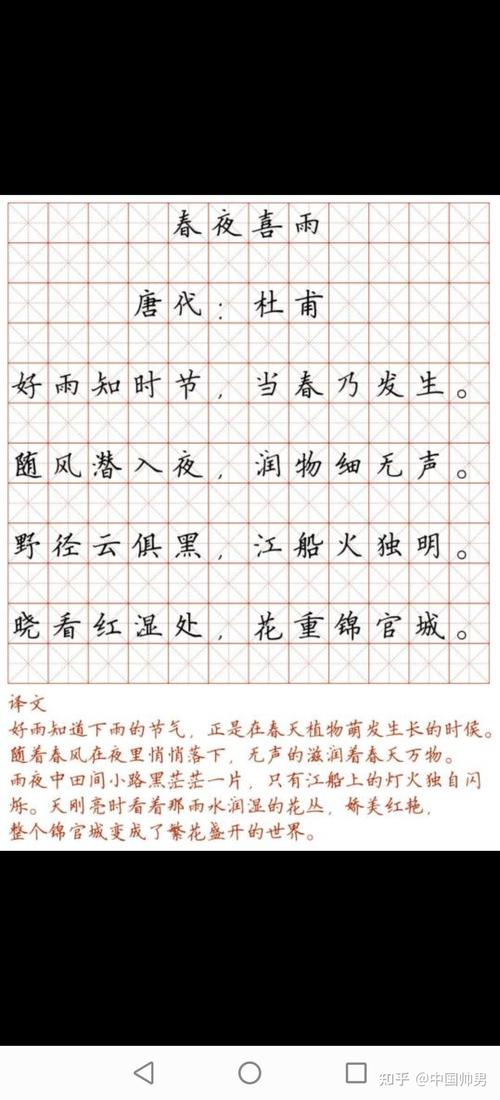 春夜喜雨
唐代：杜甫
好雨知时节，当春乃发生。
随风潜入夜，润物细无声。
野径云俱黑，江船火独明。
晓看红湿处，花重锦官城。
译文
好雨知道下雨的节气，正是在春天植物萌发生长的时候。
随着春风在夜里悄悄落下，无声的滋润着春天万物。
雨夜中田间小路黑茫茫一片，只有江船上的灯火独自闪
烁。天刚亮时看着那雨水润湿的花丛，娇美红艳，
整个锦官城变成了繁花盛开的世界。
知乎 @中国帅男